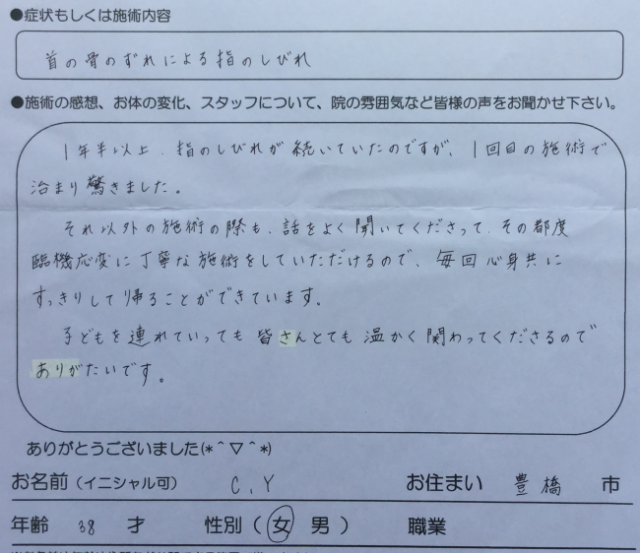 ●症状もしくは施術内容
首の骨のずれによる指のしびれ
●施術の感想、お体の変化、スタッフについて、院の雰囲気など皆様の声をお聞かせ下さい。
1年半以上、指のしびれが続いていたのですが、1回目の施術で
治まり驚きました。
それ以外の施術の際も、話をよく聞いてくださって、その都度
臨機応変に丁寧な施術をしていただけるので、毎回心身共に
すっきりして帰ることができています。
子どもを連れていっても皆さんとても温かく関わってくださるので
ありがたいです。
ありがとうございました(*^▽^*)
お名前（イニシャル可） C.Y お住まい 豊橋 市
年齢 38 才 性別（ 女 男 ） 職業